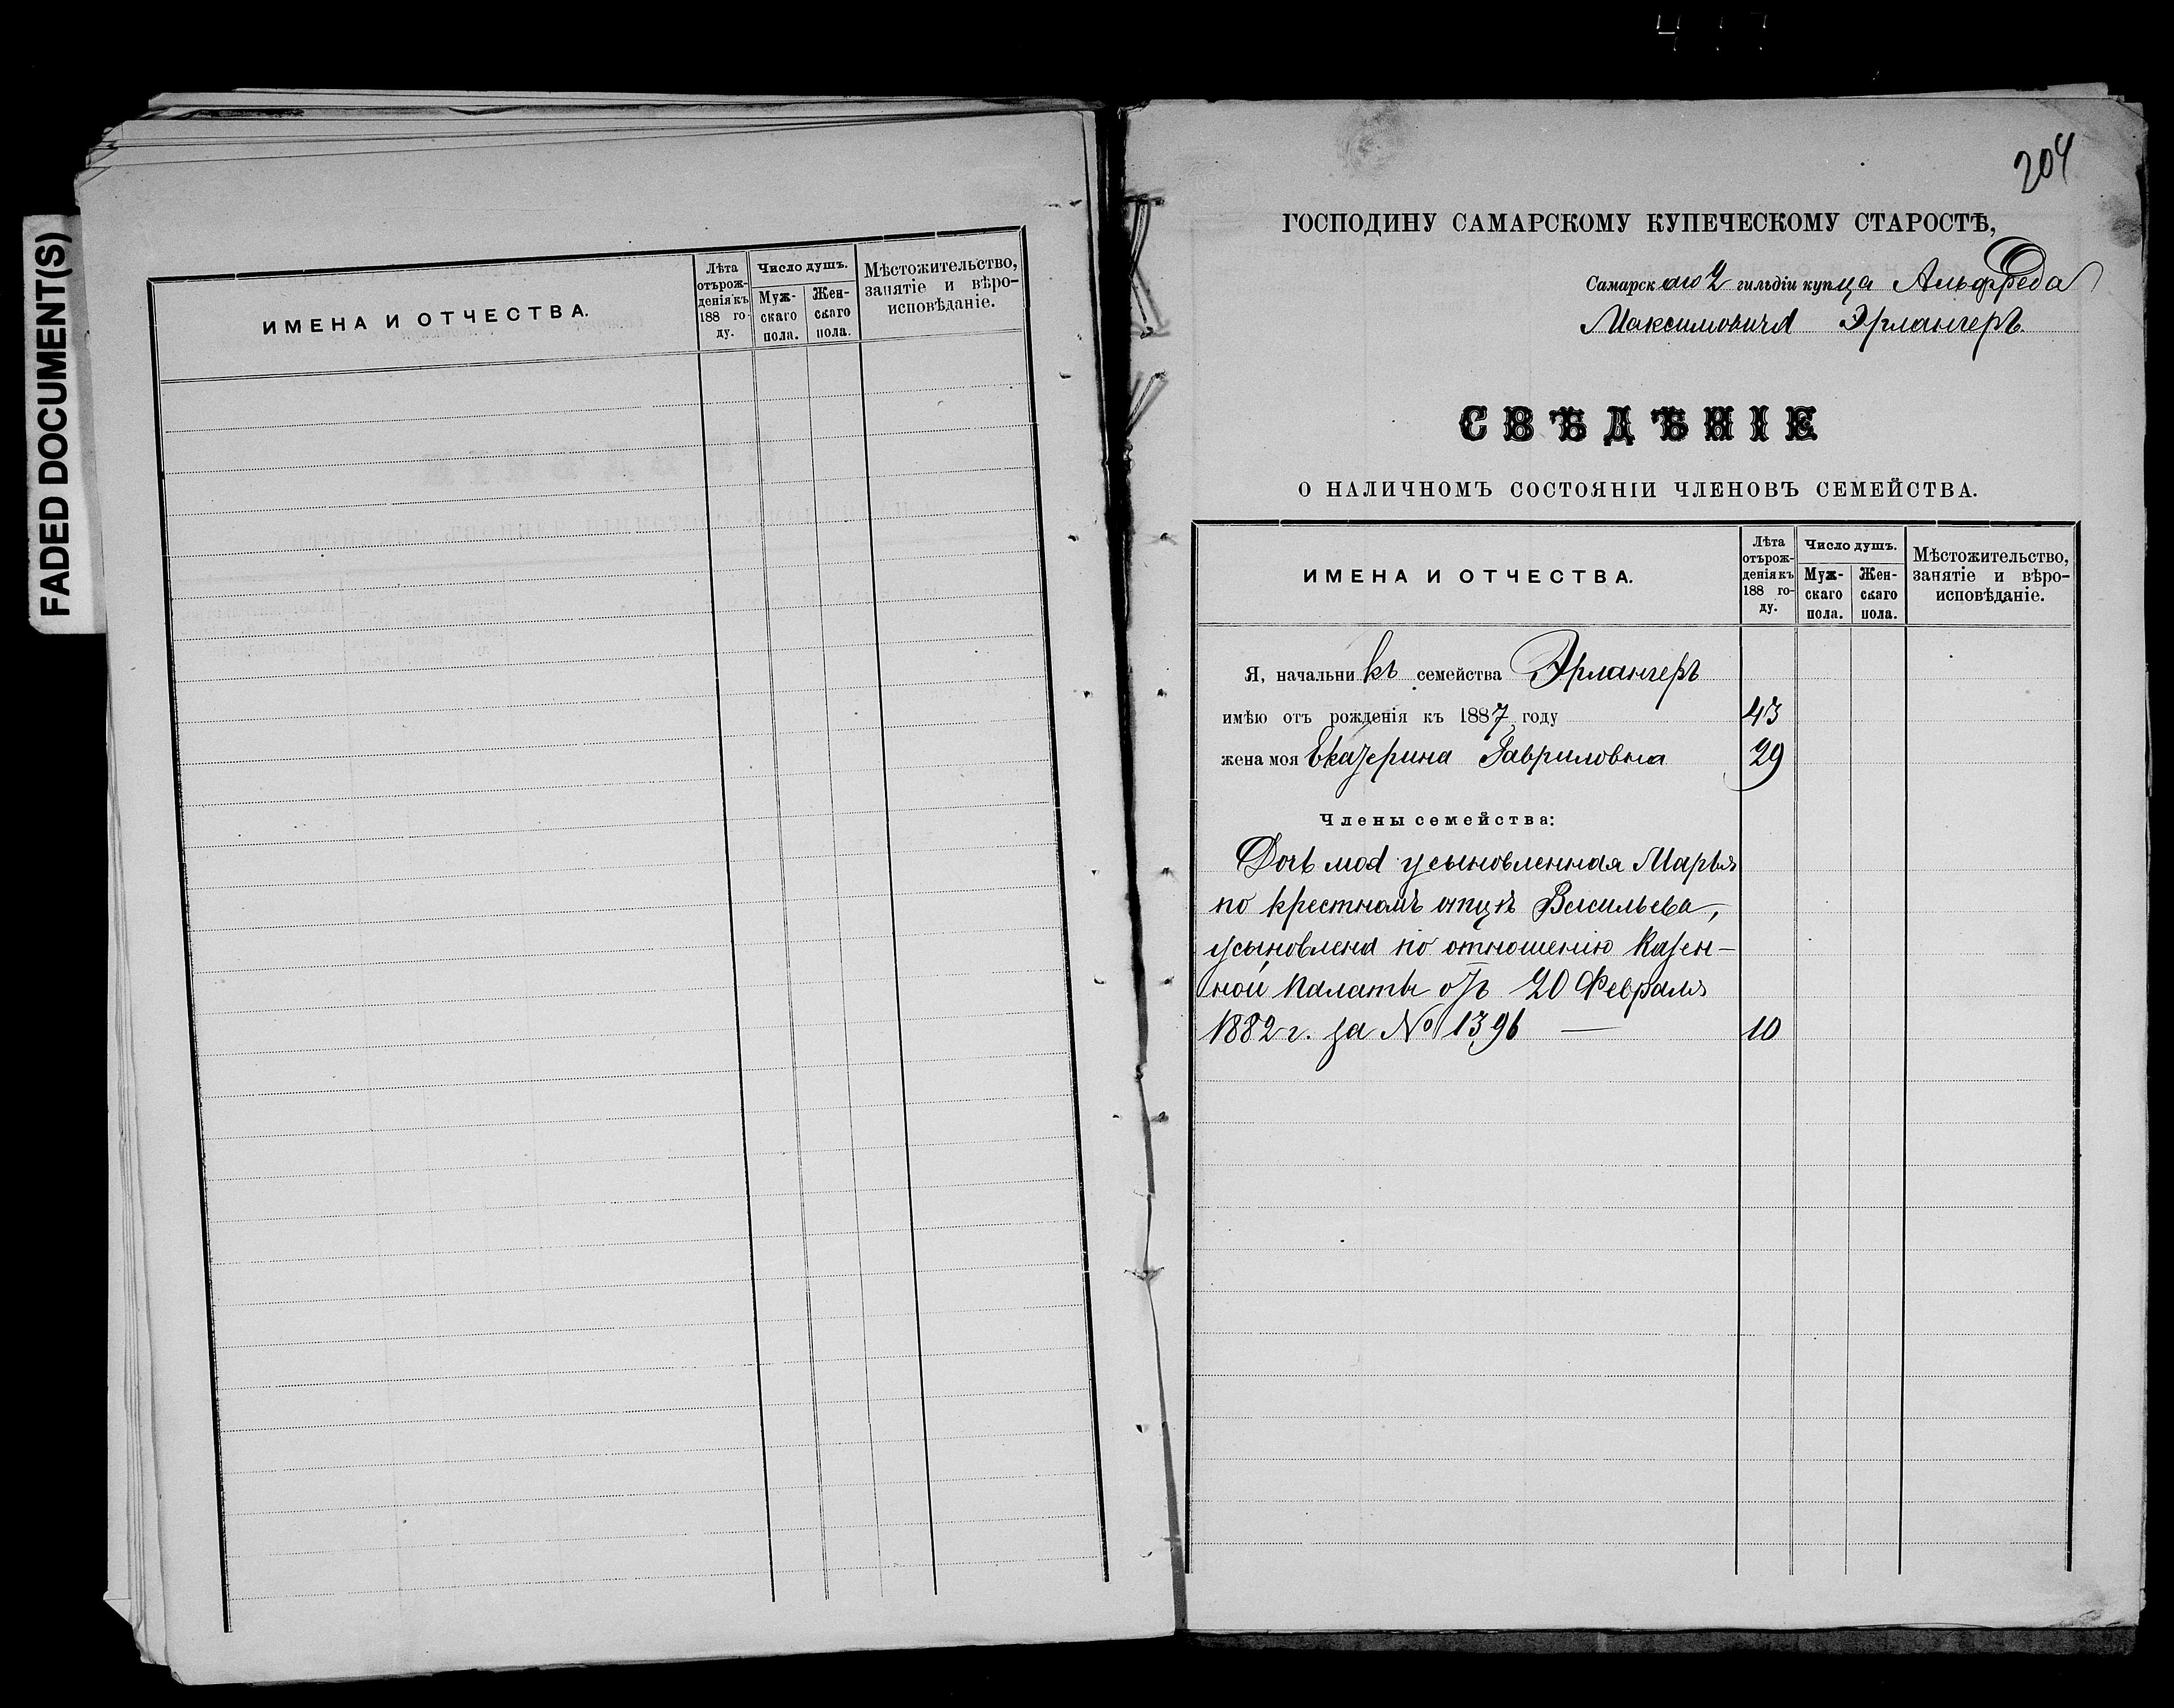 FADED DOCUMENT(S)
ИМЕНА И ОТЧЕСТВА.
Лѣта отърожденія къ 188 году.
Число душъ.
Мужскаго пола.
Женскаго пола.
Мѣстожительство, занятіе и вѣроисповѣданіе.
204
ГОСПОДИНУ САМАРСКОМУ КУПЕЧЕСКОМУ СТАРОСТѢ,
Самарскаго 2 гильдіи купца Альфреда
Максимовича Эрлангеръ.
СВѢДѢНІЕ
О НАЛИЧНОМЪ СОСТОЯНІИ ЧЛЕНОВЪ СЕМЕЙСТВА.
ИМЕНА И ОТЧЕСТВА.
Лѣта
отърож-
денія къ
188 го-
ду.
Число душъ.
Муж-
скаго
пола.
Жен-
скаго
пола.
Мѣстожительство,
занятіе и вѣро-
исповѣданіе.
Я, начальникъ семейства Эрлангеръ
имѣю отъ рожденія къ 1887 году 43
жена моя Екатерина Гавриловна 29
Члены семейства:
Дочь моя усыновленная Марья
по крестномъ отцѣ Васильева,
усыновлена по отношенію Казен-
ной Палаты отъ 20 Февраля
1882 г. за № 1396 — 10